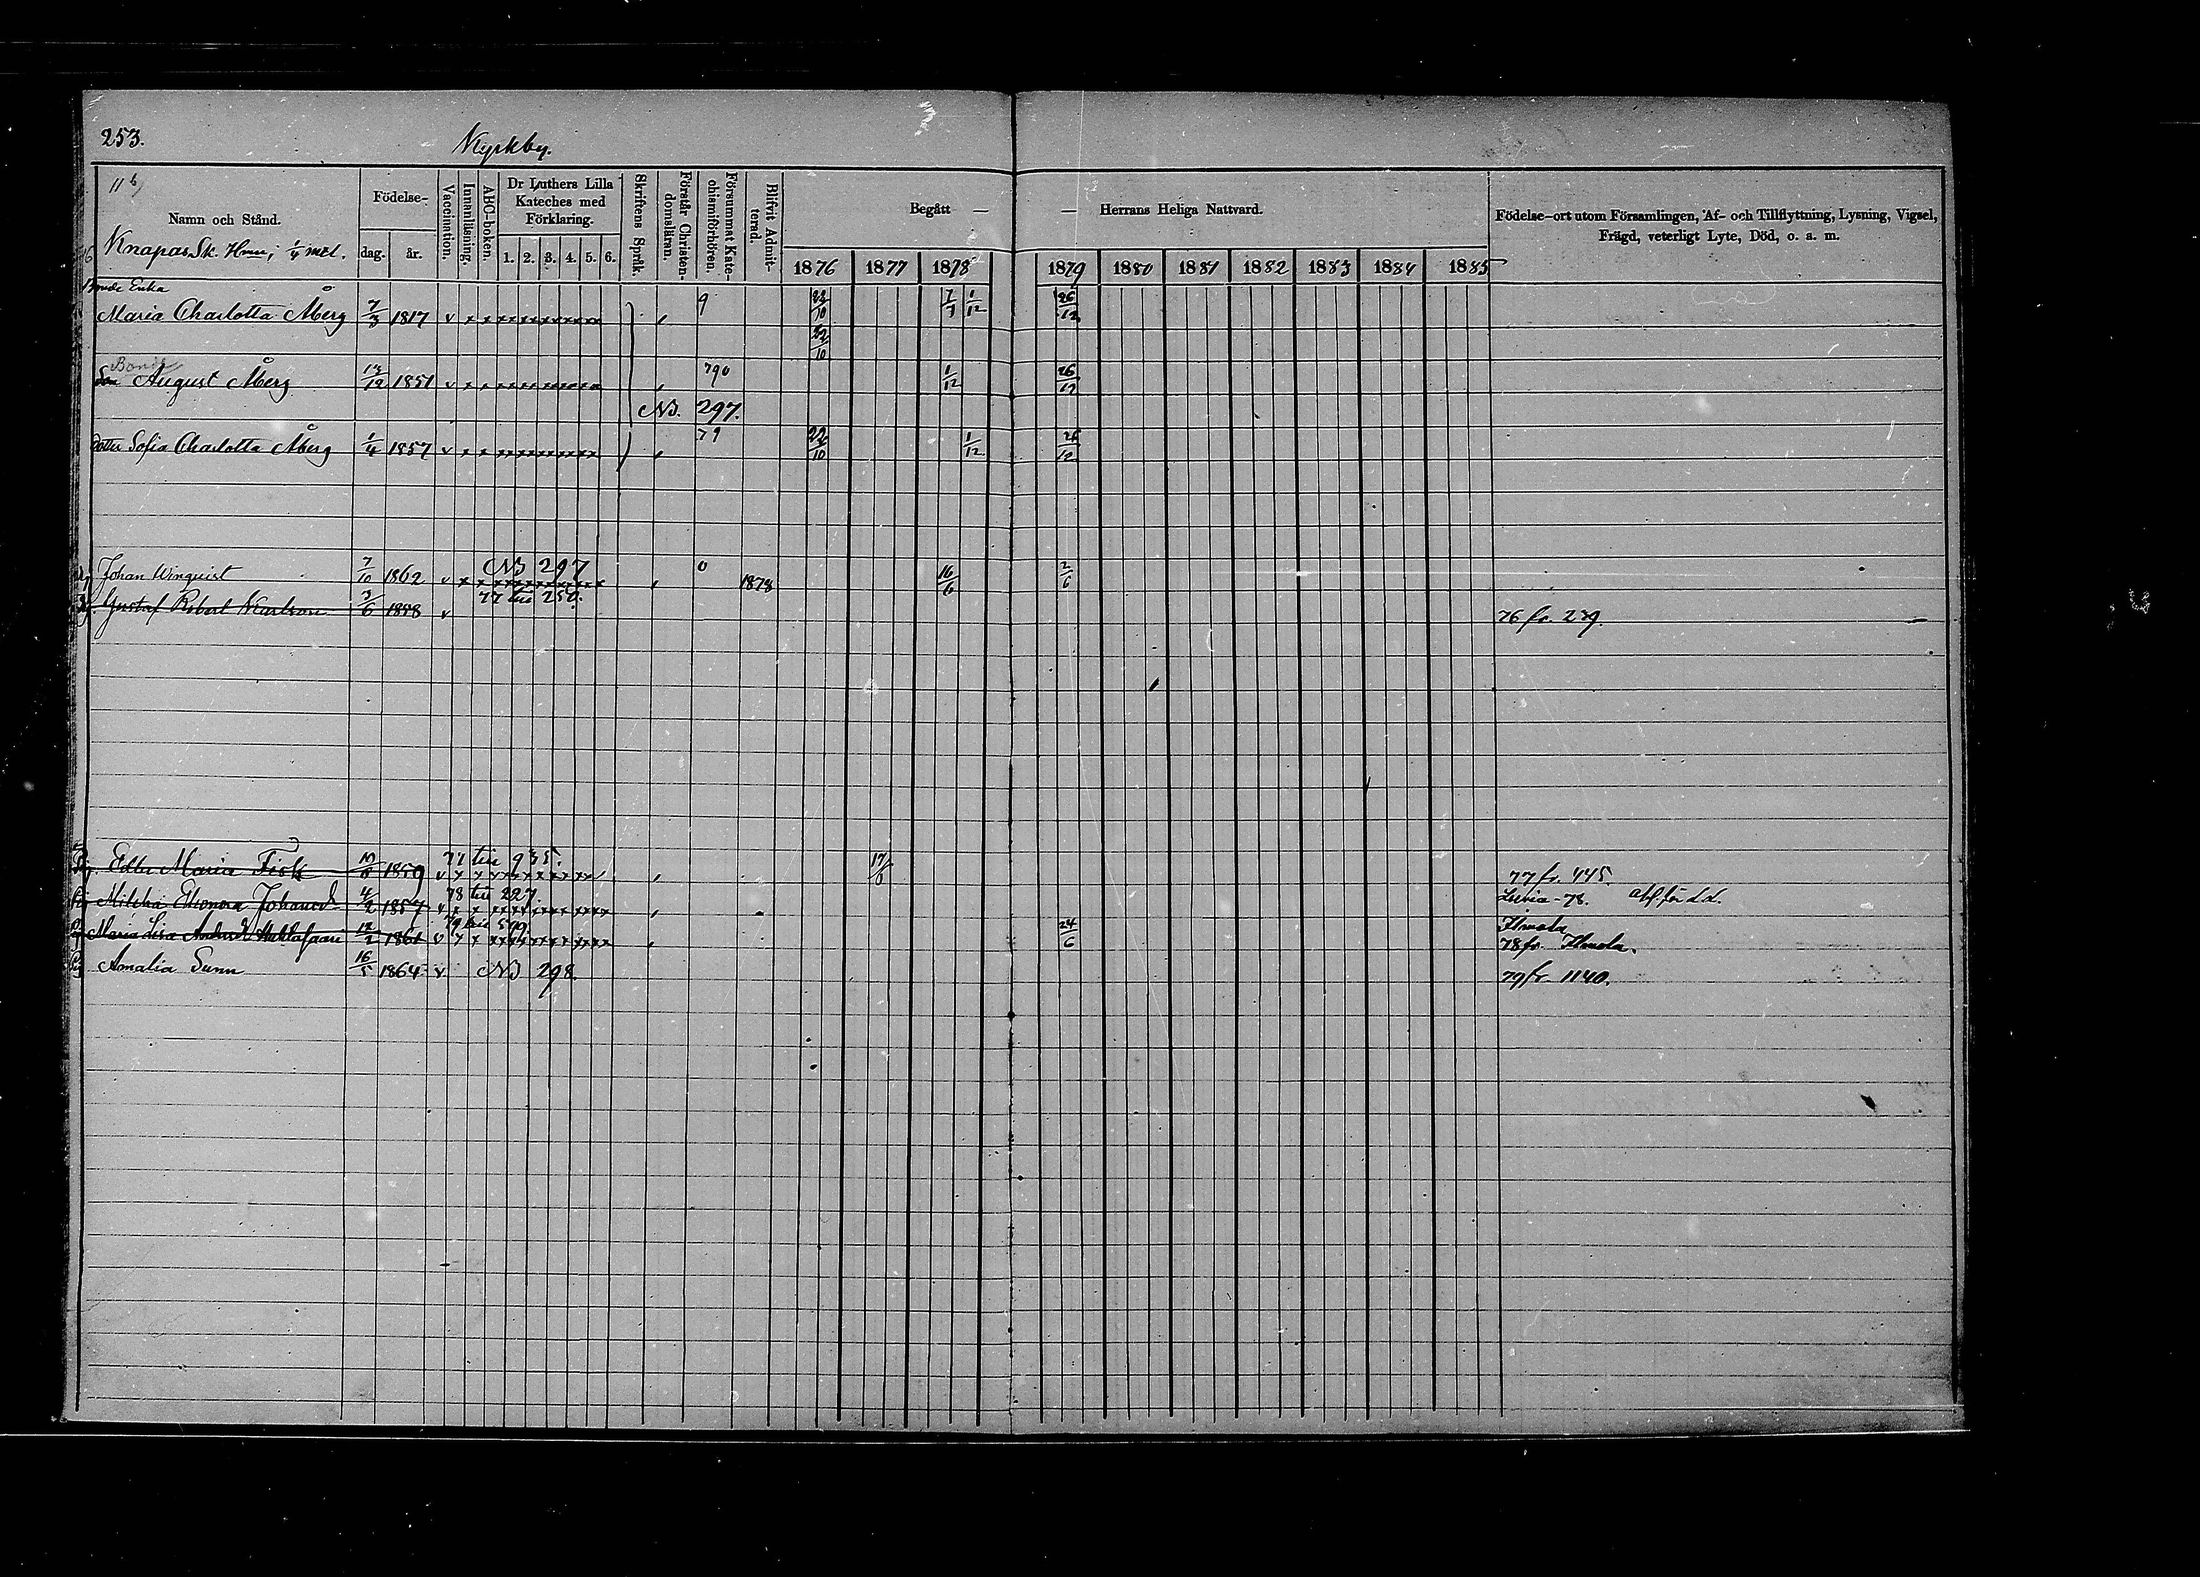 253.
Kyrkby.
11 b)
Namn och Stånd.
Knapas Sk. Hem; 1/4 mtl.
Födelse-
dag. år.
Vaccination.
Innanläsning.
ABC-boken.
Dr Luthers Lilla
Kateches med
Förklaring.
1. 2. 3. 4. 5. 6.
Skriftens Språk.
Förstår Christen-
domsläran.
Försummat Kate-
chismiförhören.
Blifvit Admit-
terad.
Begått — — Herrans Heliga Nattvard.
1876 1877 1878 1879 1880 1881 1882 1883 1884 1885
Födelse-ort utom Församlingen, Af- och Tillflyttning, Lysning, Vigsel,
Frägd, veterligt Lyte, Död, o. a. m.
Bonde Enka
Maria Charlotta Åberg 7/3 1817 v x x x x x x x x x 9 22/10 7/7 1/12 26/12
22/10
Bonde
Son August Åberg 13/12 1851 v x x x x x x x x x 790 1/12 26/12
NB. 297.
dotter Sofia Charlotta Åberg 1/4 1857 v x x x x x x x x x 79 22/10 1/12 26/12
NB 297
Johan Winquist 7/10 1862 v x x x x x x x x x 0 1878 16/6 2/6
77 till 250.
Gustaf Robert Karlson 3/6 1858 v 76 fr. 239.
77 till 935.
Edla Maria Fisk 1859 v x x x x x x x x x 17/6 77 fr. 445.
78 till 227.
Milcha Eleonora Johansd. 4/2 1857 v x x x x x x x x x Luvia - 78.
79 till 579
Maria Lisa 12/2 1861 v x x x x x x x x x 24/6 Ilmola
78 fr. Ilmola.
Amalia Sunn 16/5 1864 v NB 298. 79 fr. 1140.